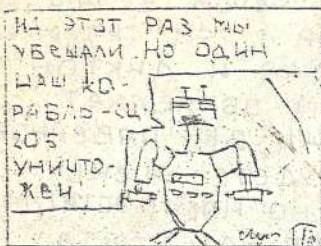 НА ЭТОТ РАЗ МЫ
УБЕЖАЛИ НО ОДИН
НАШ КО-
РАБЛЬ-СЦ
205
УНИЧТО-
ЖЕН